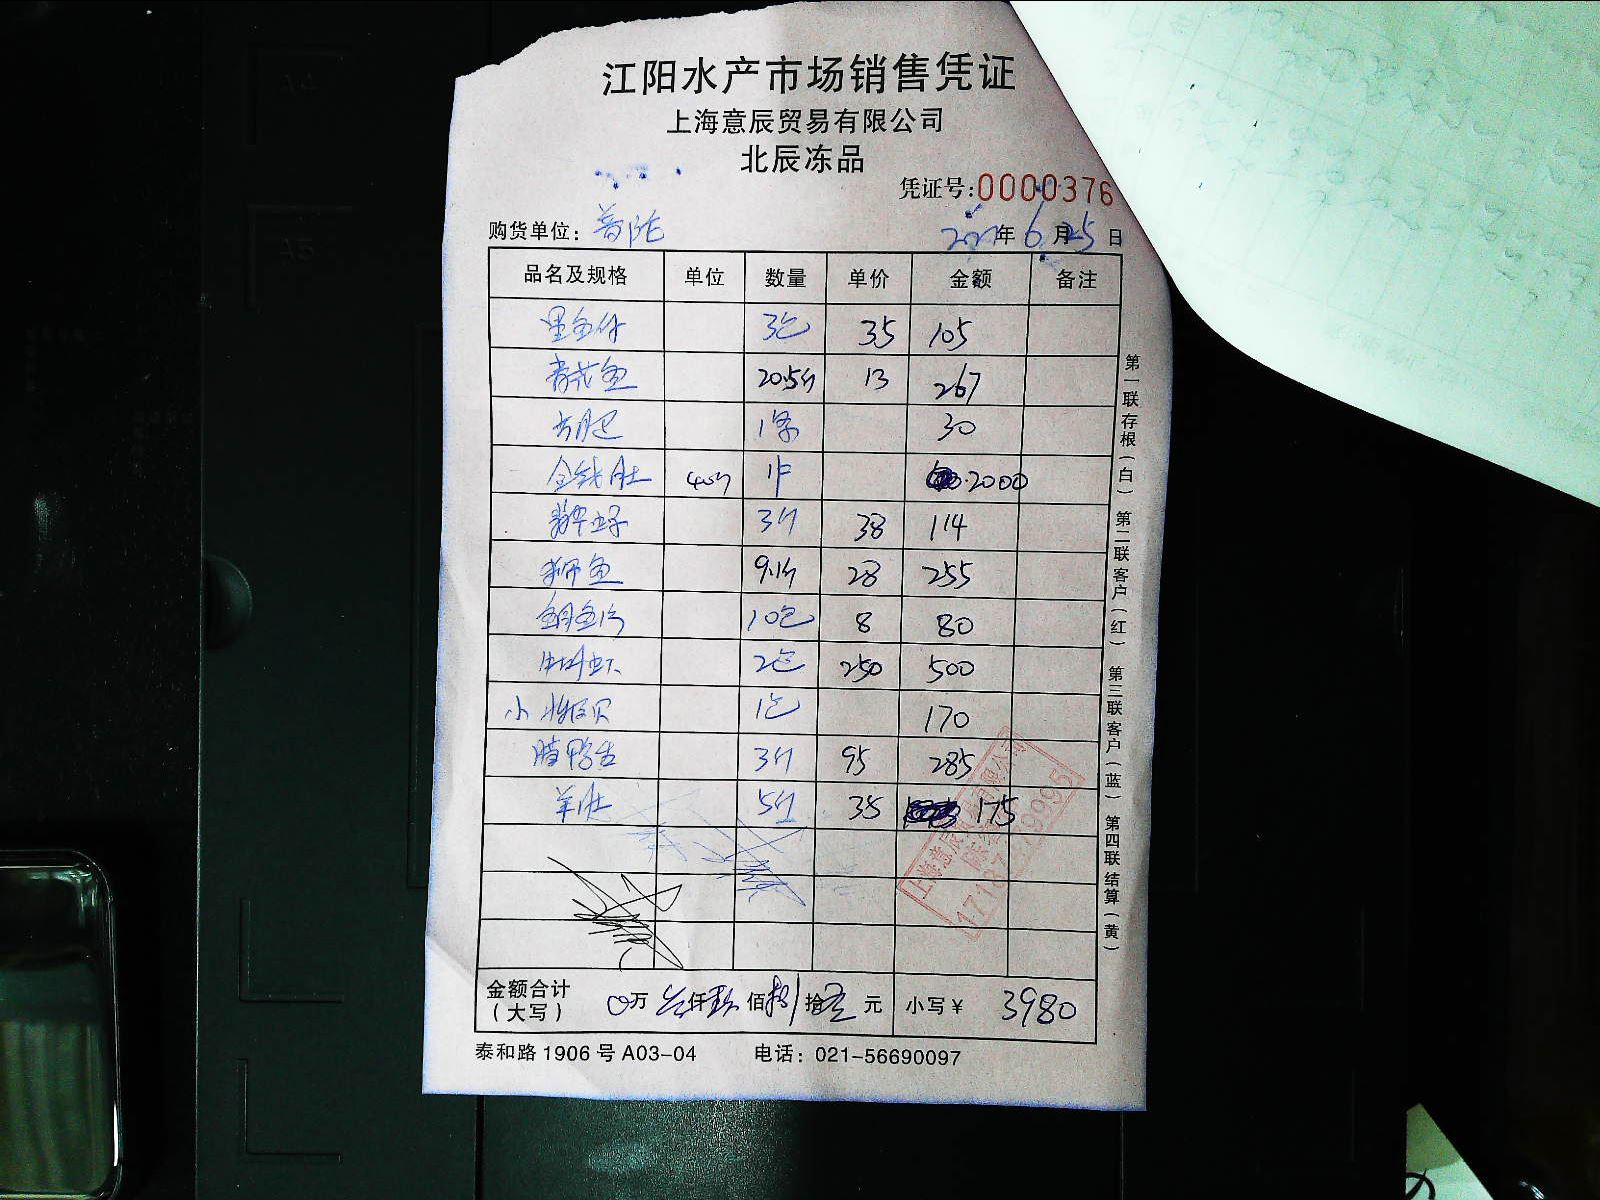 江阳水产市场销售凭证
上海意辰贸易有限公司
北辰冻品
凭证号:0000376
购货单位: 普陀 年 6 月 25 日
品名及规格 单位 数量 单价 金额 备注
3包 35 105
青花鱼 20.5斤 13 267
1条 30
金钱肚 40斤 1件 2000
3斤 38 114
狮鱼 9.1斤 28 255
10包 8 80
2包 250 500
小 1包 170
腊鸭舌 3斤 95 285
羊肚 5斤 35 175
金额合计
(大写) 0万 仟 佰 拾 元 小写￥ 3980
泰和路1906号A03-04 电话: 021-56690097
第一联 存根(白) 第二联 客户(红) 第三联 客户(蓝) 第四联 结算(黄)